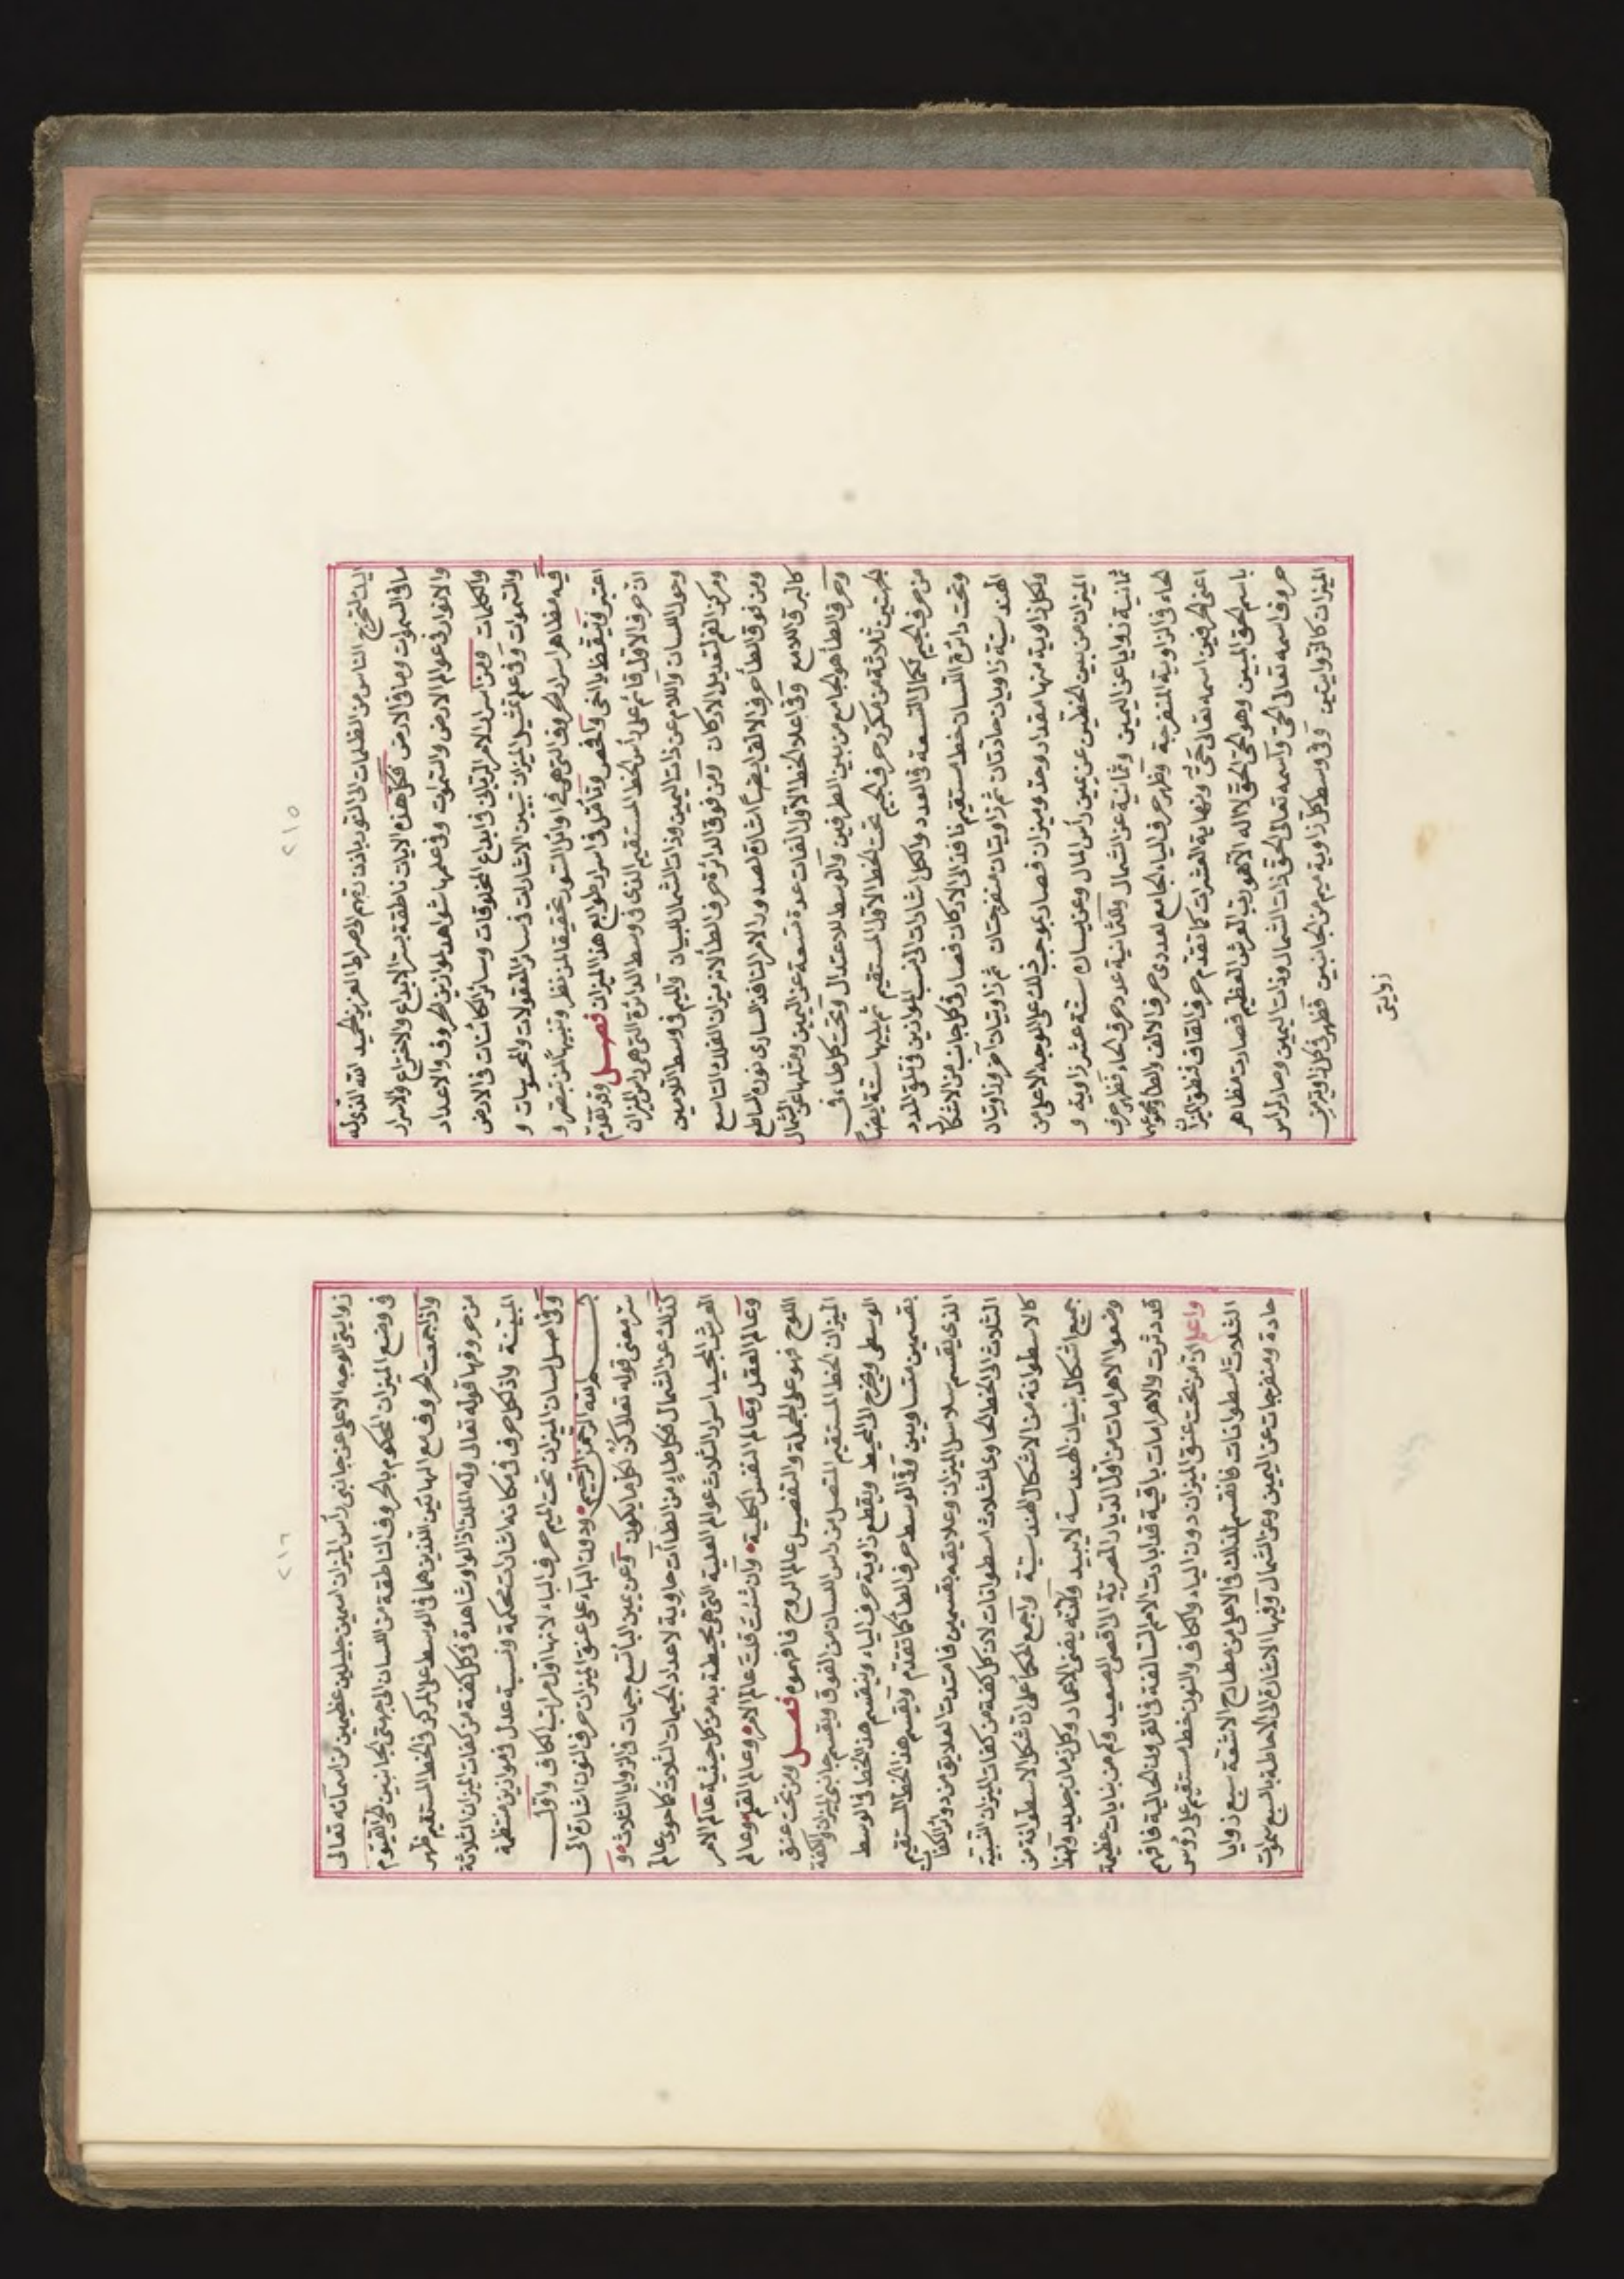 ٢١٥
اليك لتخرج الناس من الظلمات الى النور باذن ربهم الى صراط العزيز الحميد الله الذى له
ما فى السموات وما فى الارض فكل هذه الايات ناطقة بسر الابداع والاختراع والاسرار
والانوار فى عوالم الارض والسموات وفى علمها شواهد لموازين الحروف والاعداد
والكلمات ومن اسرار الامر الربانى فى ابداع المخلوقات وسائر الكائنات فى الارض
والسموات وفى علم تمثيل الميزان تبيين الاشارات فى سائر المعقولات والمحسوسات و
فيه مظاهر اسرار الحروف التى هى فى اوائل السور تحقيقا لمن نظر وتنبيها لمن تبصر و
اعتبر وتيقظ يا اخى والخص وتأمل فى اسرار طوابع هذا الميزان فصل وقد تقدم
ان حرف الاول قائم على رأس الخط المستقيم الذى فى وسط الدائرة التى هى راس الميزان
وحول اللسان واللام عن ذات اليمين وذات الشمال للبيان والميم فى وسط اللامين
ومركز القمر لتعديل الاركان ومن فوق الدائرة حرف الطا لانه ميزان الفلك التاسع
ومن فوق الطا حرف الالف ايضا اشارة لصدور الامر النافذ السارى نوره الساطع
كالبرق اللامع وفى اعلا الخط الاول الفات عدة تسعة عن اليمين ومثلها عن الشمال
وحرف الطا هو الجامع من بين الطرفين والوسط للاعتدال وتحت كل طاء فى
الجهتين ثلاثة من مكرر حرف الجيم تحت الخط الاول المستقيم ثم يليها ستة ايضا
من حرف الجيم لكمال التسعة فى العدد والكل اشارات الى نسب الموازين فى تلقى المدد
وتحت دائرة اللسان خط مستقيم نافذ الى الاركان فصار فى كل جانب من الاشكال
الهندسية زاويتان حادتان ثم زاويتان منفرجتان ثم زاويتان اخر وزاويتان
ولكل زاوية منها مقدار وحد وميزان فصار بموجب ذلك على الوجه الاعلى من
الميزان من بين الخطين عن يمين رأس المال وعن يساره ستة عشر زاوية و
ثمانية زوايا عن اليمين وثمانية عن الشمال والثمانية عدد حرف الحاء فظهر حرف
الحاء فى الزاوية المنفرجة وظهر حرف الياء الجامع لعددى حرف الالف والطا ومجموعهما
اعنى الحرفين اسمه تعالى حى ونهاية العشرات كما تقدم حرف القاف فنطق الميزان
باسم الحق المبين وهو الحى الحق لا اله الا هو رب العرش العظيم فصارت مظاهر
حروف اسمه تعالى الحى واسمه تعالى الحق ذات الشمال وذات اليمين وصار لراس
الميزان كالزوايتين وفى وسط كل زاوية ميم من الجانبين فظهر فى كل زاويتين
زوايتى
٢١٦
زوايتى الوجه الاعلى عن جانبى رأس الميزان اسمين جليلين عظيمين من اسمائه تعالى
فى وضع الميزان المحكوم بالحروف الناطقة من اللسان الى جهتى الجانبين الحى القيوم
واذا جمعت الحروف مع الهائين اللذين هما فى الوسط على المركز فى الخط المستقيم ظهر
من حروفها قوله تعالى وله الملك اذ الواو شاهدة فى كل كفة من كفات الميزان الثلاثة
المبينة واذ لكل حرف فى مكانه اشارات محكمة ونسبة عدل فى موازين منتظمة
وفى اصل لسان الميزان تحت الميم حرف الباء لانها اول مراتب الكاف واول
بسم الله الرحمن الرحيم ودون الباء على عنق الميزان حرف النون اشارة الى
سر معنى قوله تعالى كن لكل ما يكون وعن يمين الباء تسع جيمات فى الزوايا الثلاث و
كذلك عن الشمال فكل طاء من الطاآت حاوية لاعداد الجيمات الثلاث كما حوى عالم
العرش المجيد اسرار الثلاث عوالم العلية التى هى محيطة به من كل حيثية عالم الامر
وعالم العقل وعالم النفس الكلية وان شئت قلت عالم الامر وعالم القلم وعالم
اللوح فهو على الجملة والتفصيل عالم الروح فافهموه فصل ومن تحت عنق
الميزان الخط المستقيم المتصل من راس اللسان من الفوق ويقسم جانبى الميزان والكفة
الوسطى ويخرج الى المحيط ويقطع زاوية حرف الياء وينقسم هذا الخط فى الوسط
بقسمين متساويين وفى الوسط حرف الطا كما تقدم ويقسم هذا الخط المستقيم
الذى يقسم سلاسل الميزان وعلايقه بقسمين فامتدت العلايق من دوائر الكفات
الثلاث الى الخط الحاوى الثلاث اسطوانات لان كل كفة من كفات الميزان النسبية
كالاسطوانة من الاشكال الهندسية واجمع الحكما على ان شكل الاسطوانة من
جميع اشكال بنيان الهندسة لا يبيد ولانه يفنى الاعمار وكل زمان جديد ولهذا
وضعوا الاهرامات من اول الديار المصرية الى اقصى الصعيد وكم من بنايات عظيمة
قد دثرت والاهرامات باقية قد ابادت الامم السالفة فى القرون الخالية فافهم
واعلم ان من تحت عنق الميزان دون الباء والكاف والنون خط مستقيم على رؤس
الثلاث اسطوانات فانقسم لذلك فى الاعلى من مطارح الاشعة سبع زوايا
حادة ومنفرجات عن اليمين وعن الشمال وفيها الاشارة الى الاحاطة بالسبع سموات